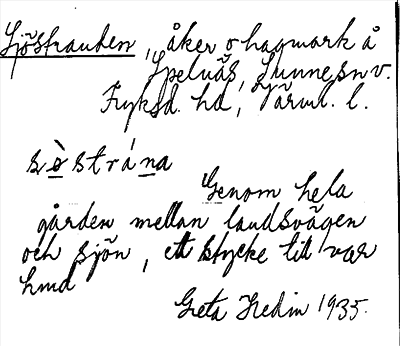 Sjöstranden, åker o hagmark å
Spelnäs, Sunnesn v.
Fryksd. hd, Värml. l.
sò̱ strána̱
Genom hela
gården mellan landsvägen
och sjön, ett stycke till var
hmd
Greta Hedin 1935.